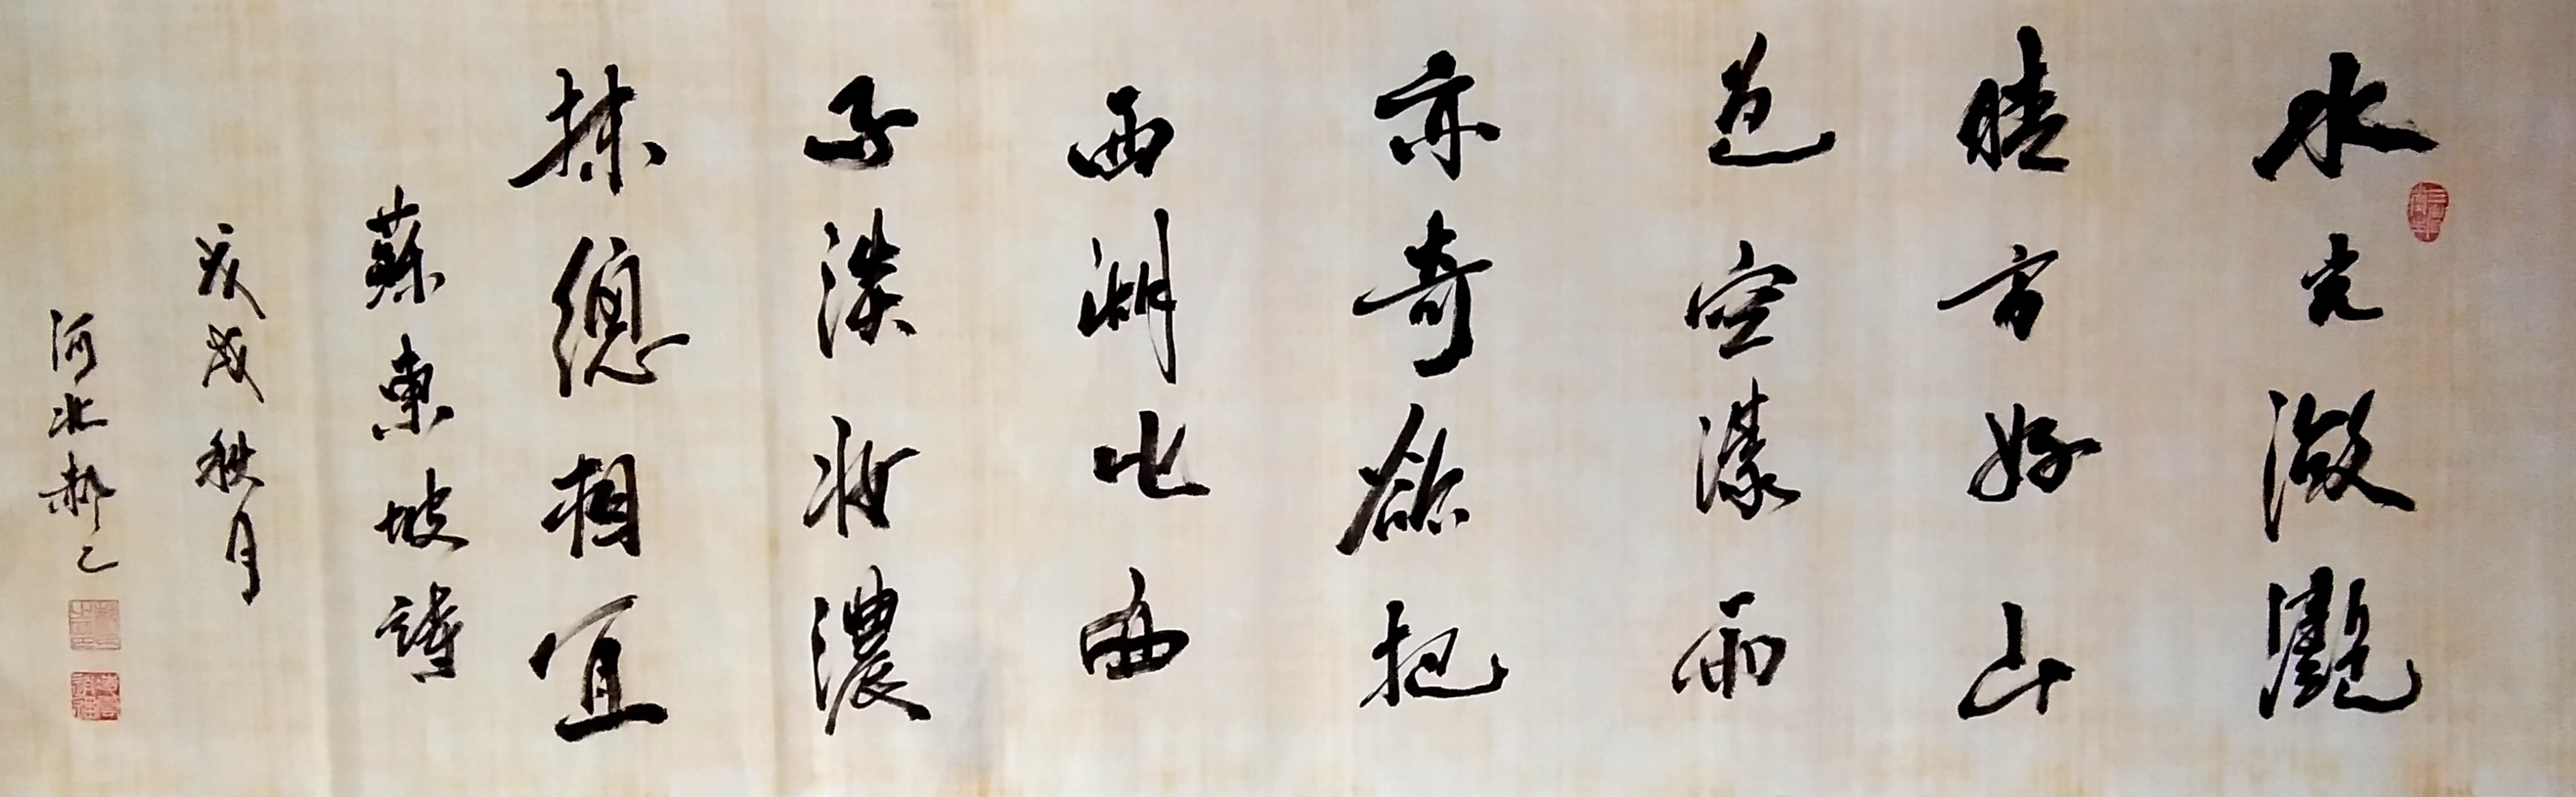 水光潋灧
晴方好山
色空濛雨
亦奇欲把
西湖比西
子淡妝濃
抹總相宜
蘇東坡詩
戌秋月
河北郝